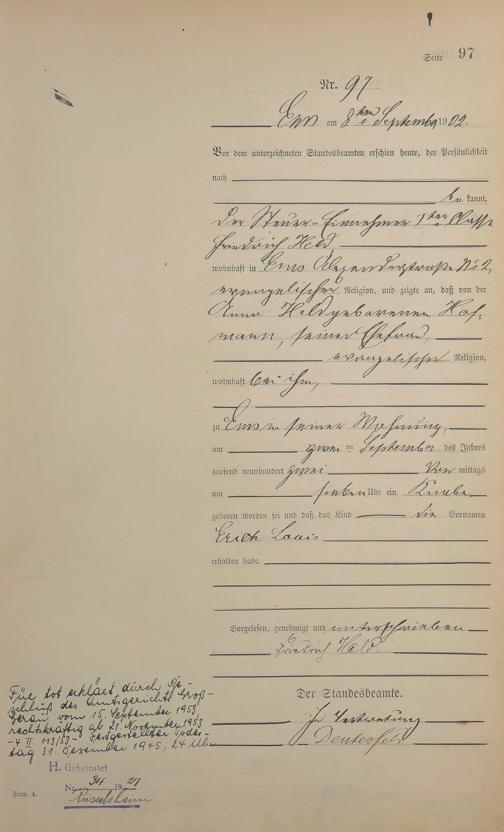 Seite 97
Nr. 97
Ems am 8ten September 1902.
Vor dem unterzeichneten Standesbeamten erschien heute, der Persönlichkeit
nach
be kannt,
der Steuer-Einnehmer 1ter Classe
Friedrich Held,
wohnhaft in Ems Alexanderstraße No 2,
evangelischer Religion, und zeigte an, daß von der
Anna Held geborenen Hof-
mann, seiner Ehefrau,
evangelischer Religion,
wohnhaft bei ihm,
zu Ems in seiner Wohnung,
am zwei ten September des Jahres
tausend neunhundert zwei Vor mittags
um sieben Uhr ein Knabe
geboren worden sei und daß das Kind die Vornamen
Erich Louis
erhalten habe.
Vorgelesen, genehmigt und unterschrieben
Friedrich Held.
Der Standesbeamte.
In Vertretung
Für tot erklärt durch Be-
schluß des Amtsgerichts Groß-
Gerau vom 15. September 1953,
rechtskräftig ab 21. November 1953
- 4 II 113/53 - Festgestellter Todes-
tag 31. Dezember 1945, 24 Uhr
H. Geheiratet
Nr. 34 1927
Rüsselsheim
Form. A.